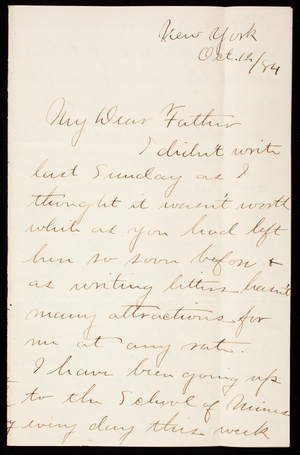 New York
Oct. 12/84
My Dear Father
I didn't write
last Sunday as I
thought it wasn't worth
while as you had left
here so soon before &
as writing letters hasn't
many attractions for
me at any rate.
I have been going up
to the School of Mines
every day this week